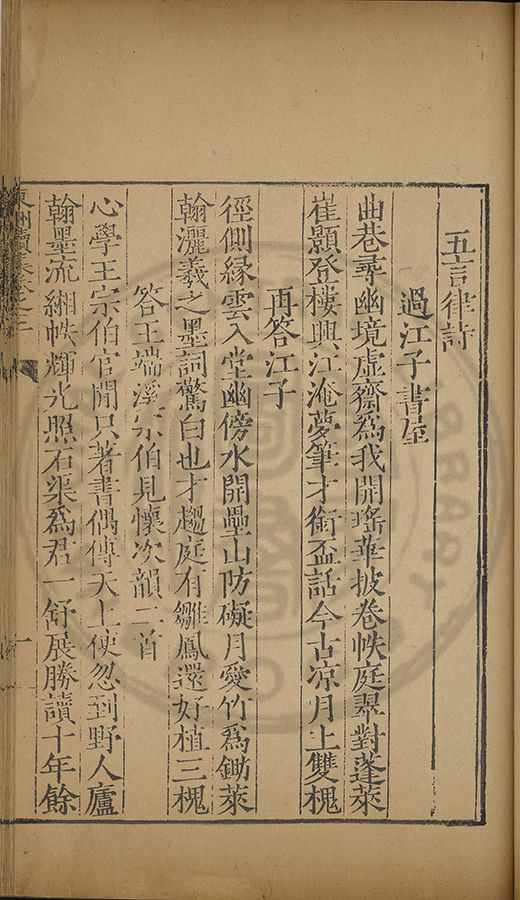 五言律詩
過江子書屋
曲巷尋幽境虛齋為我開瑤華披卷帙庭翠對蓬萊
崔顥登樓興江淹夢筆才銜盃話今古凉月上雙槐
再答江子
徑側緣雲入堂幽傍水開壘山防礙月愛竹為鋤萊
翰灑羲之墨詞驚白也才趨庭有雛鳳還好植三槐
答王端溪宗伯見懷次韻二首
心學王宗伯官閒只著書偶傳天上使忽到野人廬
翰墨流緗帙輝光照石渠為君一舒展勝讀十年餘